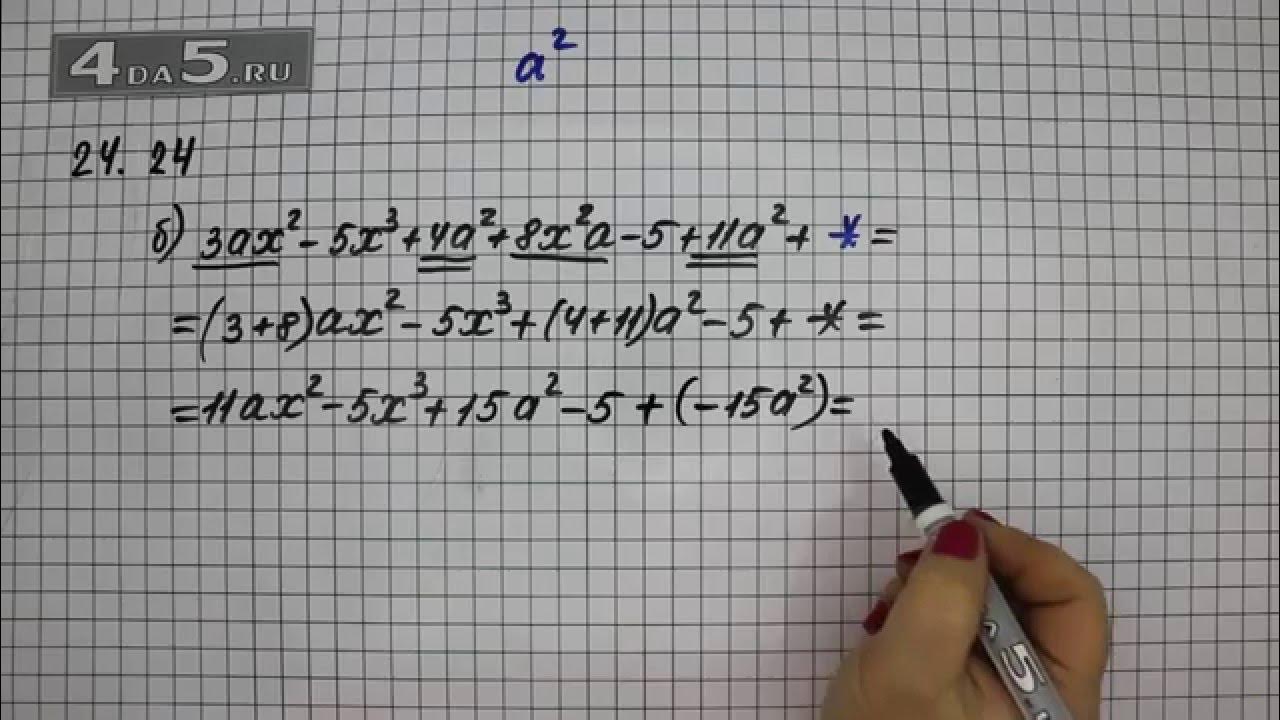 4DA5.RU
a²
24. 24
б) 3ax² - 5x³ + 4a² + 8x²a - 5 + 11a² + * =
= (3+8)ax² - 5x³ + (4+11)a² - 5 + * =
= 11ax² - 5x³ + 15a² - 5 + (-15a²) =
5